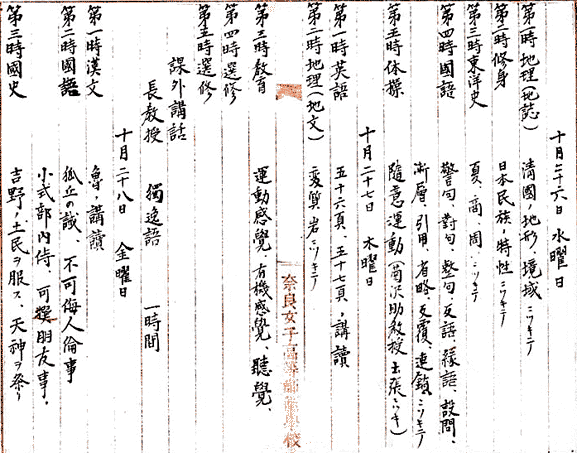 十月二十六日 水曜日
第一時 地理(地誌) 清國ノ地形、境域ニツキテ
第二時 修身 日本民族ノ特性ニツキテ
第三時 東洋史 夏、商、周、ニツキテ
第四時 國語 警句、對句、整句、反語、縁語、設問、
漸層、引用、省略、反覆、連鎖、ニツキテ
第五時 体操 隨意運動(助教授出張ニツキ)
十月二十七日 木曜日
第一時 英語 五十六頁、五十七頁、講讀
第二時 地理(地文) 変質岩ニツキテ
奈良女子高等師範學校
第三時 教育 運動感覺、有機感覺、聽覺、
第四時 選修
第五時 選修
課外講話
長教授 獨逸語 一時間
十月二十八日 金曜日
第一時 漢文 講讀
第二時 國語 狐丘の誡、不可侮人倫事
小式部内侍、可撰朋友事、
第三時 國史 吉野ノ土民ヲ服ス、天神ヲ祭リ